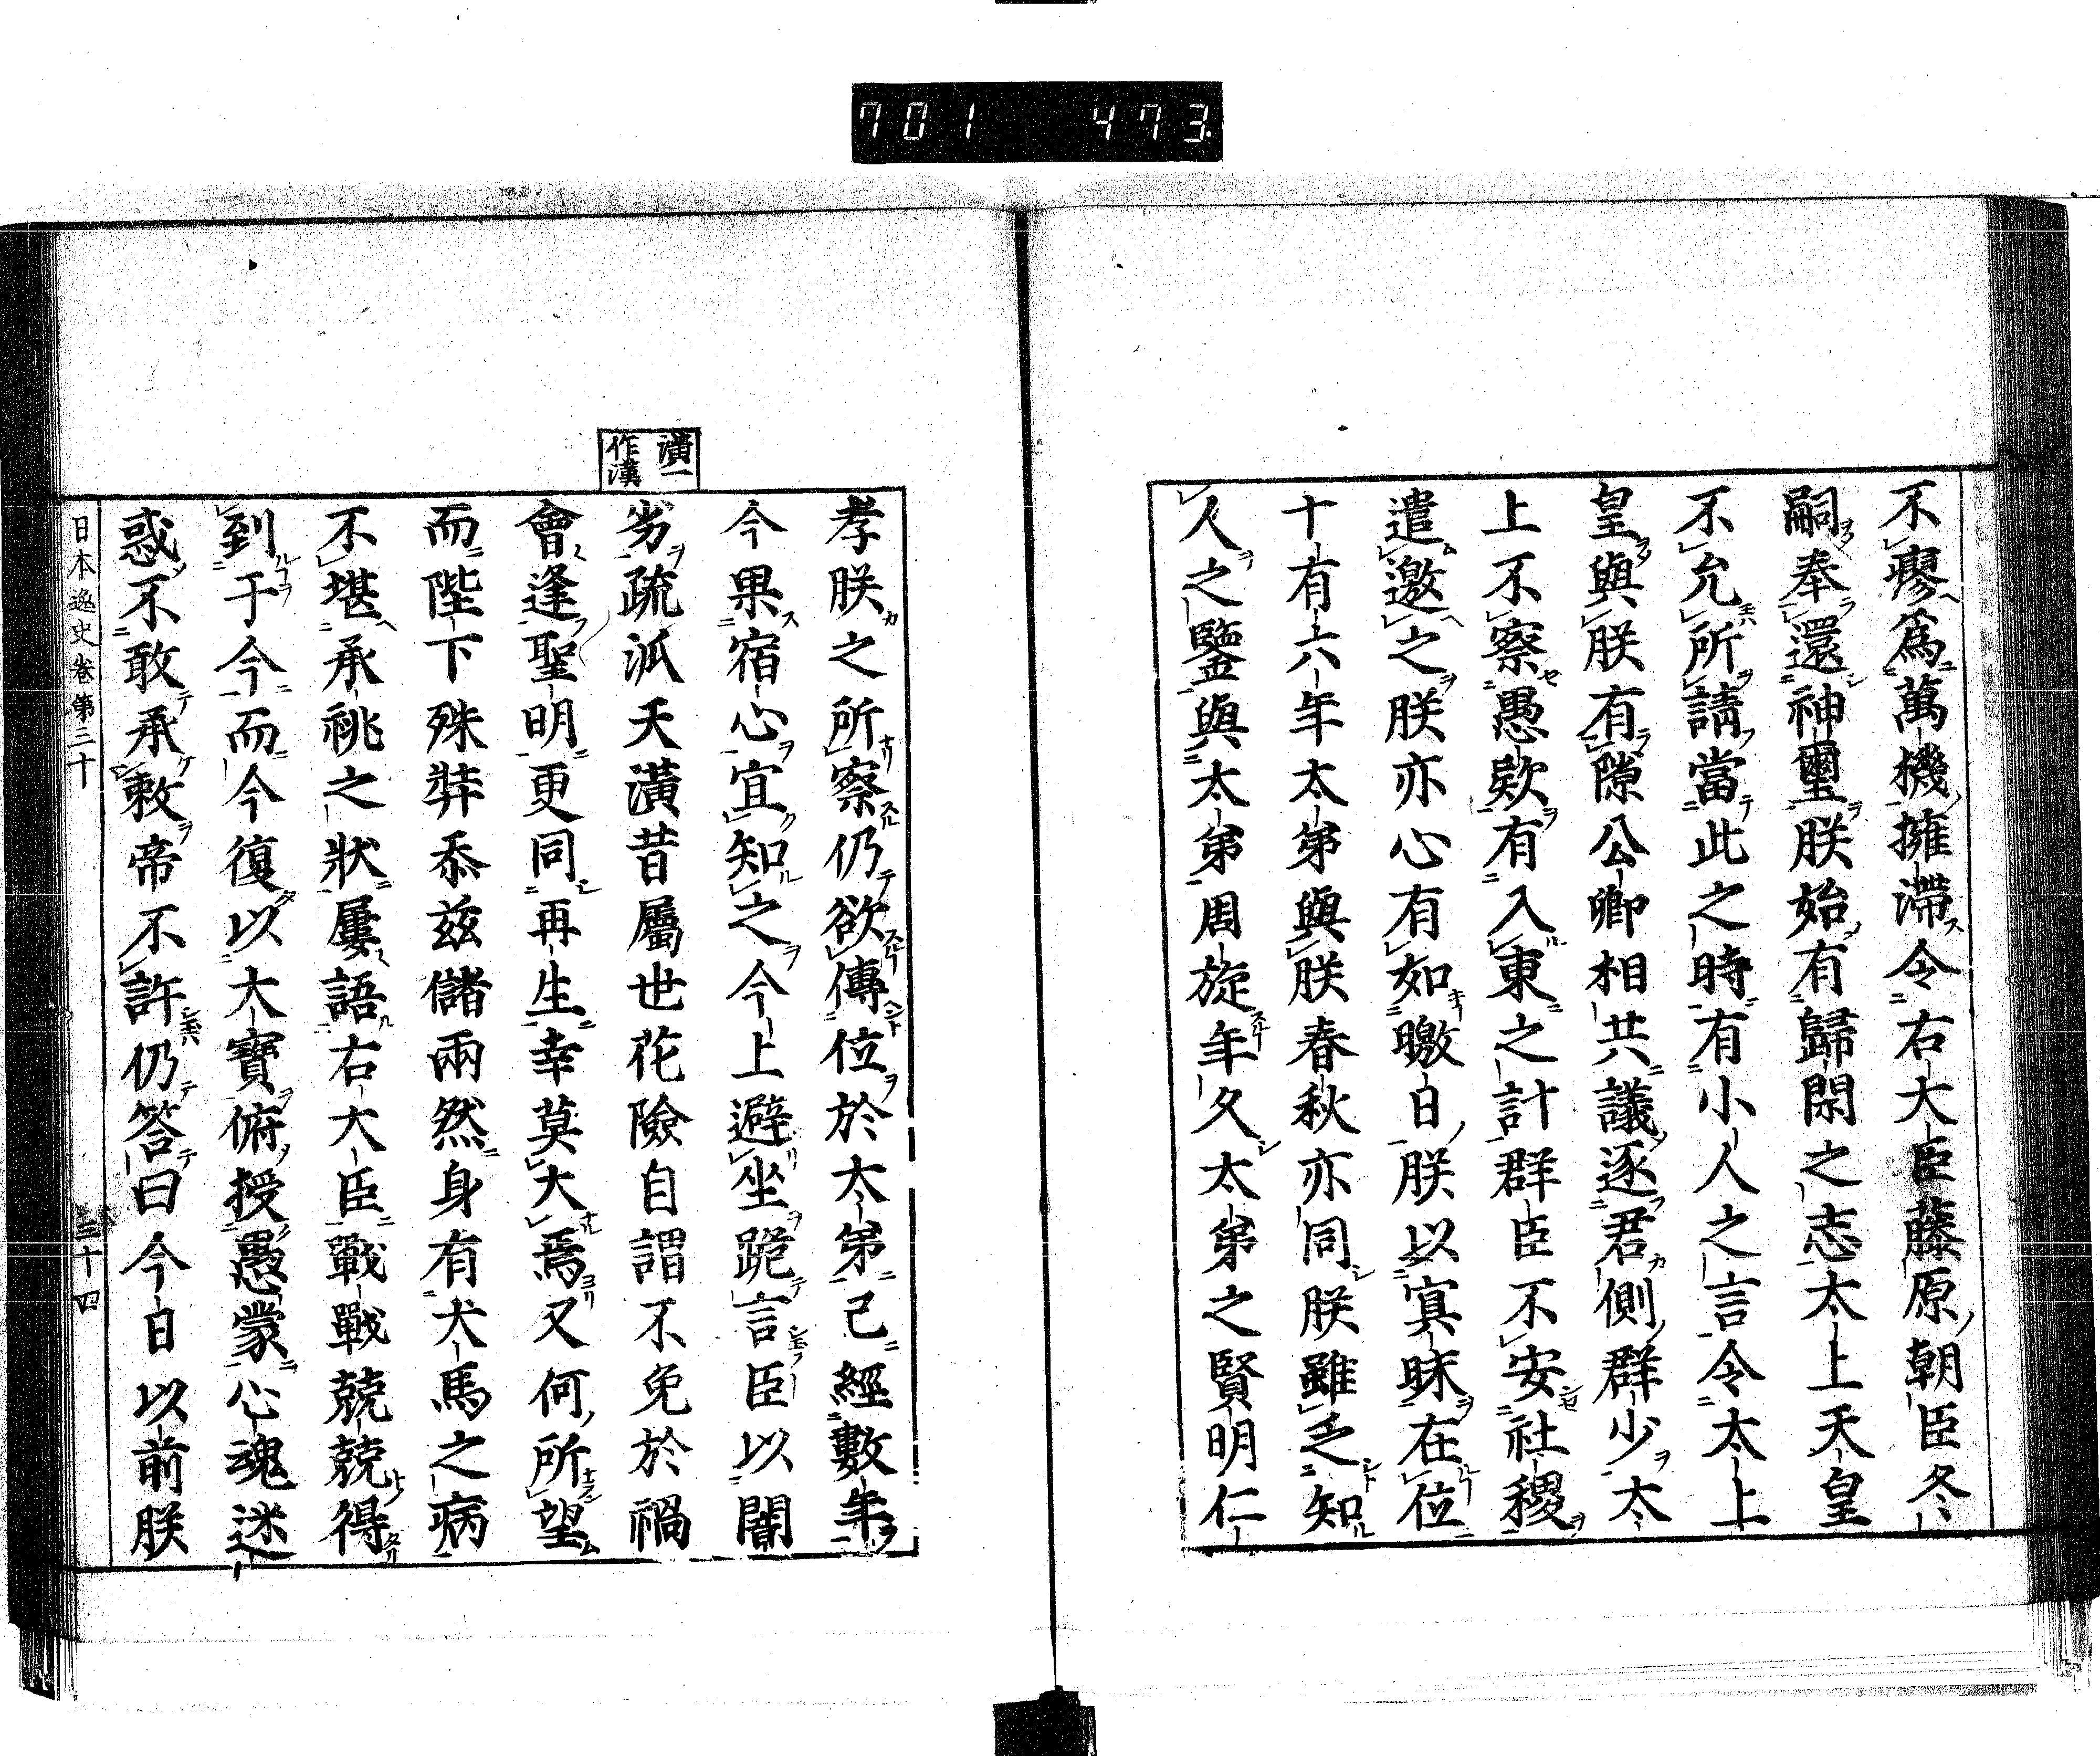 701 473
不瘳爲萬機擁滯令右大臣藤原朝臣冬
嗣奉還神璽朕始有歸閑之志太上天皇
不允所請當此之時有小人之言令太上
皇與朕有隙公卿相共議逐君側群少太
上不察愚款有入東之計群臣不安社稷
遣邀之朕亦心有如曒日朕以寘昧在位
十有六年太弟與朕春秋亦同朕雖乏知
人之鑒與太弟周旋年久太弟之賢明仁
孝朕之所察仍欲傳位於太弟已經數年
今果宿心宜知之今上避坐跪言臣以闇
劣疏派天潢昔屬世花險自謂不免於禍
會逢聖明更同再生幸莫大焉又何所望
而陛下殊弉忝兹儲兩然身有犬馬之病
不堪承祧之狀屢語右大臣戰戰兢兢得
到于今而今復以大寶俯授愚蒙心魂迷
惑不敢承敕帝不許仍答曰今日以前朕
潢一作漢
日本逸史卷第三十 三十四